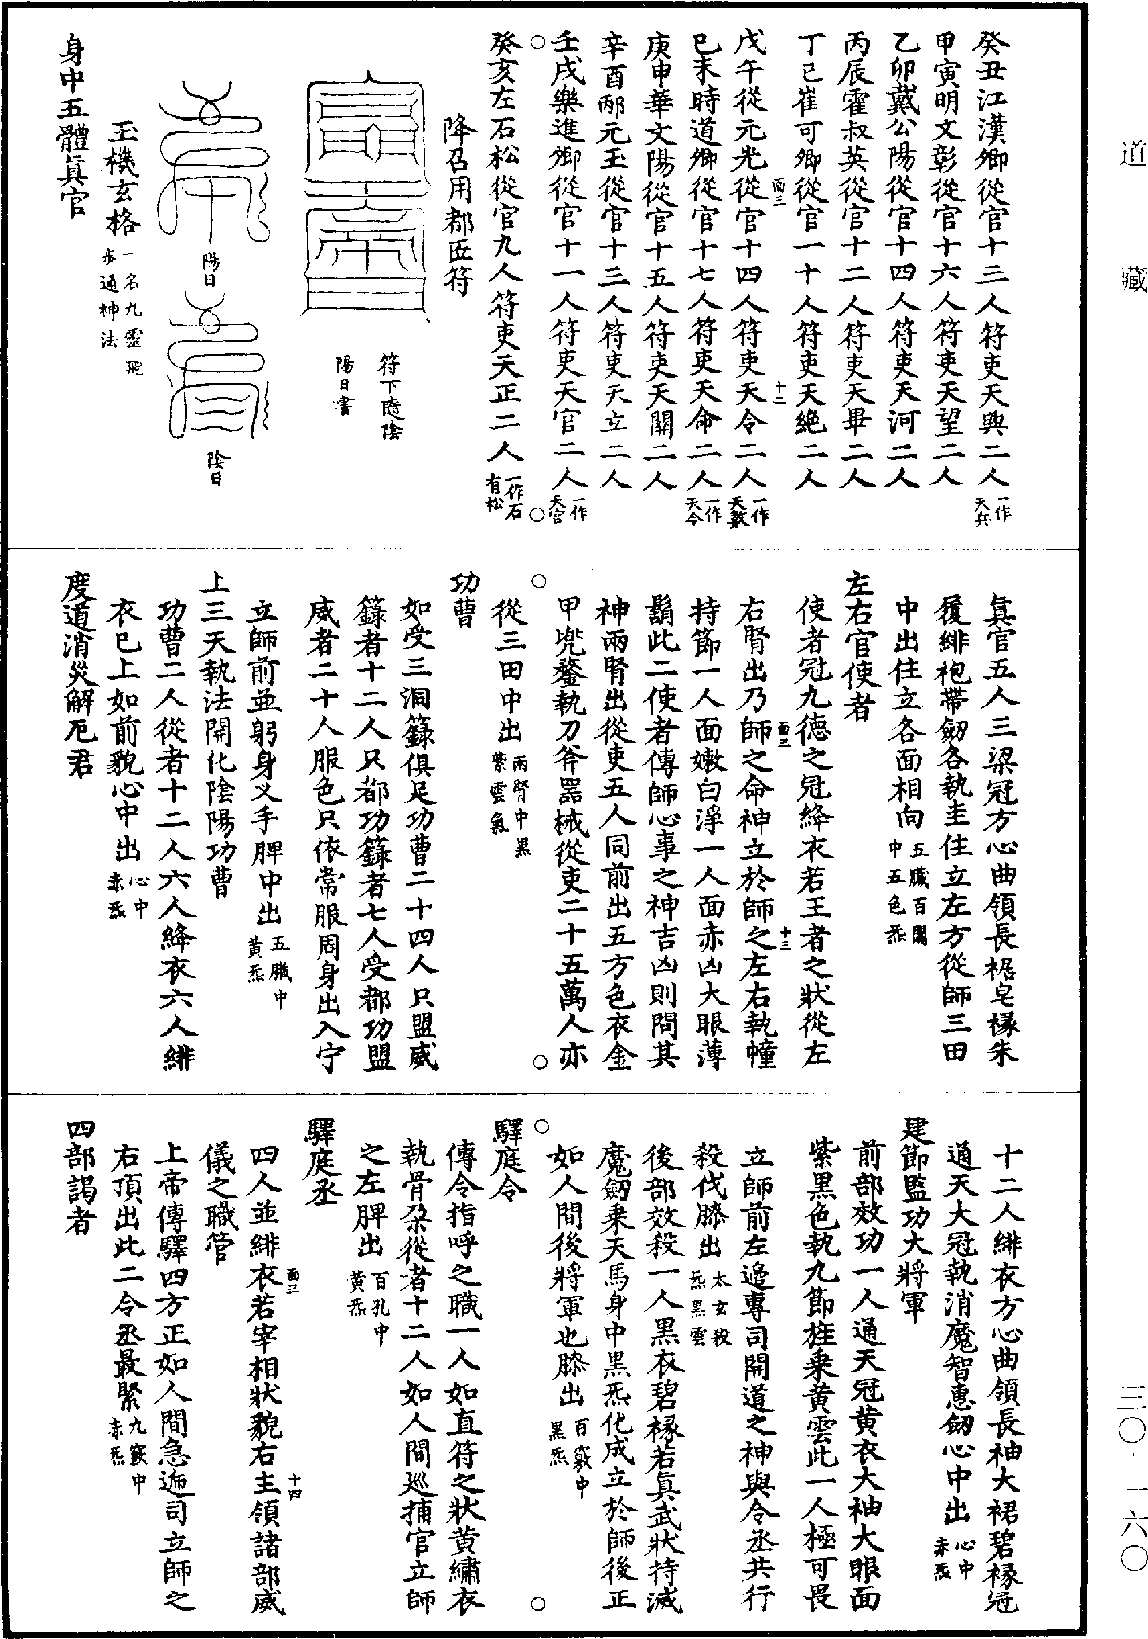 道藏
癸丑江漢卿從官十三人符吏天與二人一作天兵
甲寅明文彰從官十六人符吏天望二人
乙卯戴公陽從官十四人符吏天河二人
丙辰霍叔英從官十二人符吏天畢二人
丁巳崔可卿從官一十人符吏天絶二人
面三 十二
戊午從元光從官十四人符吏天令二人一作天數
己未時道卿從官十七人符吏天命二人一作天令
庚申華文陽從官十五人符吏天關二人
辛酉邴元玉從官十三人符吏天立二人
壬戌樂進卿從官十一人符吏天官二人一作天宫
癸亥左石松從官九人符吏天正二人一作石有松
降召用都匠符
符下隨陰
陽日書
陽日
陰日
玉機玄格一名九靈飛步通神法
身中五體真官
真官五人三梁冠方心曲領長裾皂褖朱
履緋袍帶劒各執圭住立左方從師三田
中出住立各面相向五臟百關中五色炁
左右官使者
使者冠九德之冠絳衣若王者之狀從左
面三 十三
右腎出乃師之命神立於師之左右執幢
持節一人面嫩白淨一人面赤凶大眼薄
鬍此二使者傳師心事之神吉凶則問其
神兩腎出從吏五人同前出五方色衣金
甲兜鍪執刀斧器械從吏二十五萬人亦
從三田中出兩腎中黑紫雲氣
功曹
如受三洞籙俱足功曹二十四人只盟威
籙者十二人只都功籙者七人受都功盟
威者二十人服色只依常服周身出入宁
立師前並躬身叉手脾中出五臟中黄炁
上三天執法開化陰陽功曹
功曹二人從者十二人六人絳衣六人緋
衣巳上如前貌心中出心中赤炁
度道消災解厄君
十二人緋衣方心曲領長袖大裙碧褖冠
通天大冠執消魔智惠劒心中出心中赤炁
建節監功大將軍
前部效功一人通天冠黄衣大袖大眼面
紫黑色執九節旌乘黄雲此一人極可畏
立師前左邊專司開道之神與令丞共行
殺伐膝出太玄殺炁黑雲
後部效殺一人黑衣碧褖若真武狀持滅
魔劒乘天馬身中黑炁化成立於師後正
如人間後將軍也膝出百竅中黑炁
驛庭令
傳令指呼之職一人如直符之狀黄繡衣
執骨朶從者十二人如人間巡捕官立師
之左脾出百孔中黄炁
驛庭丞
面三 十四
四人並緋衣若宰相狀貌右主領諸部威
儀之職管
上帝傳驛四方正如人間急遞司立師之
右頂出此二令丞最緊九竅中赤炁
四部謁者
三〇·一六〇